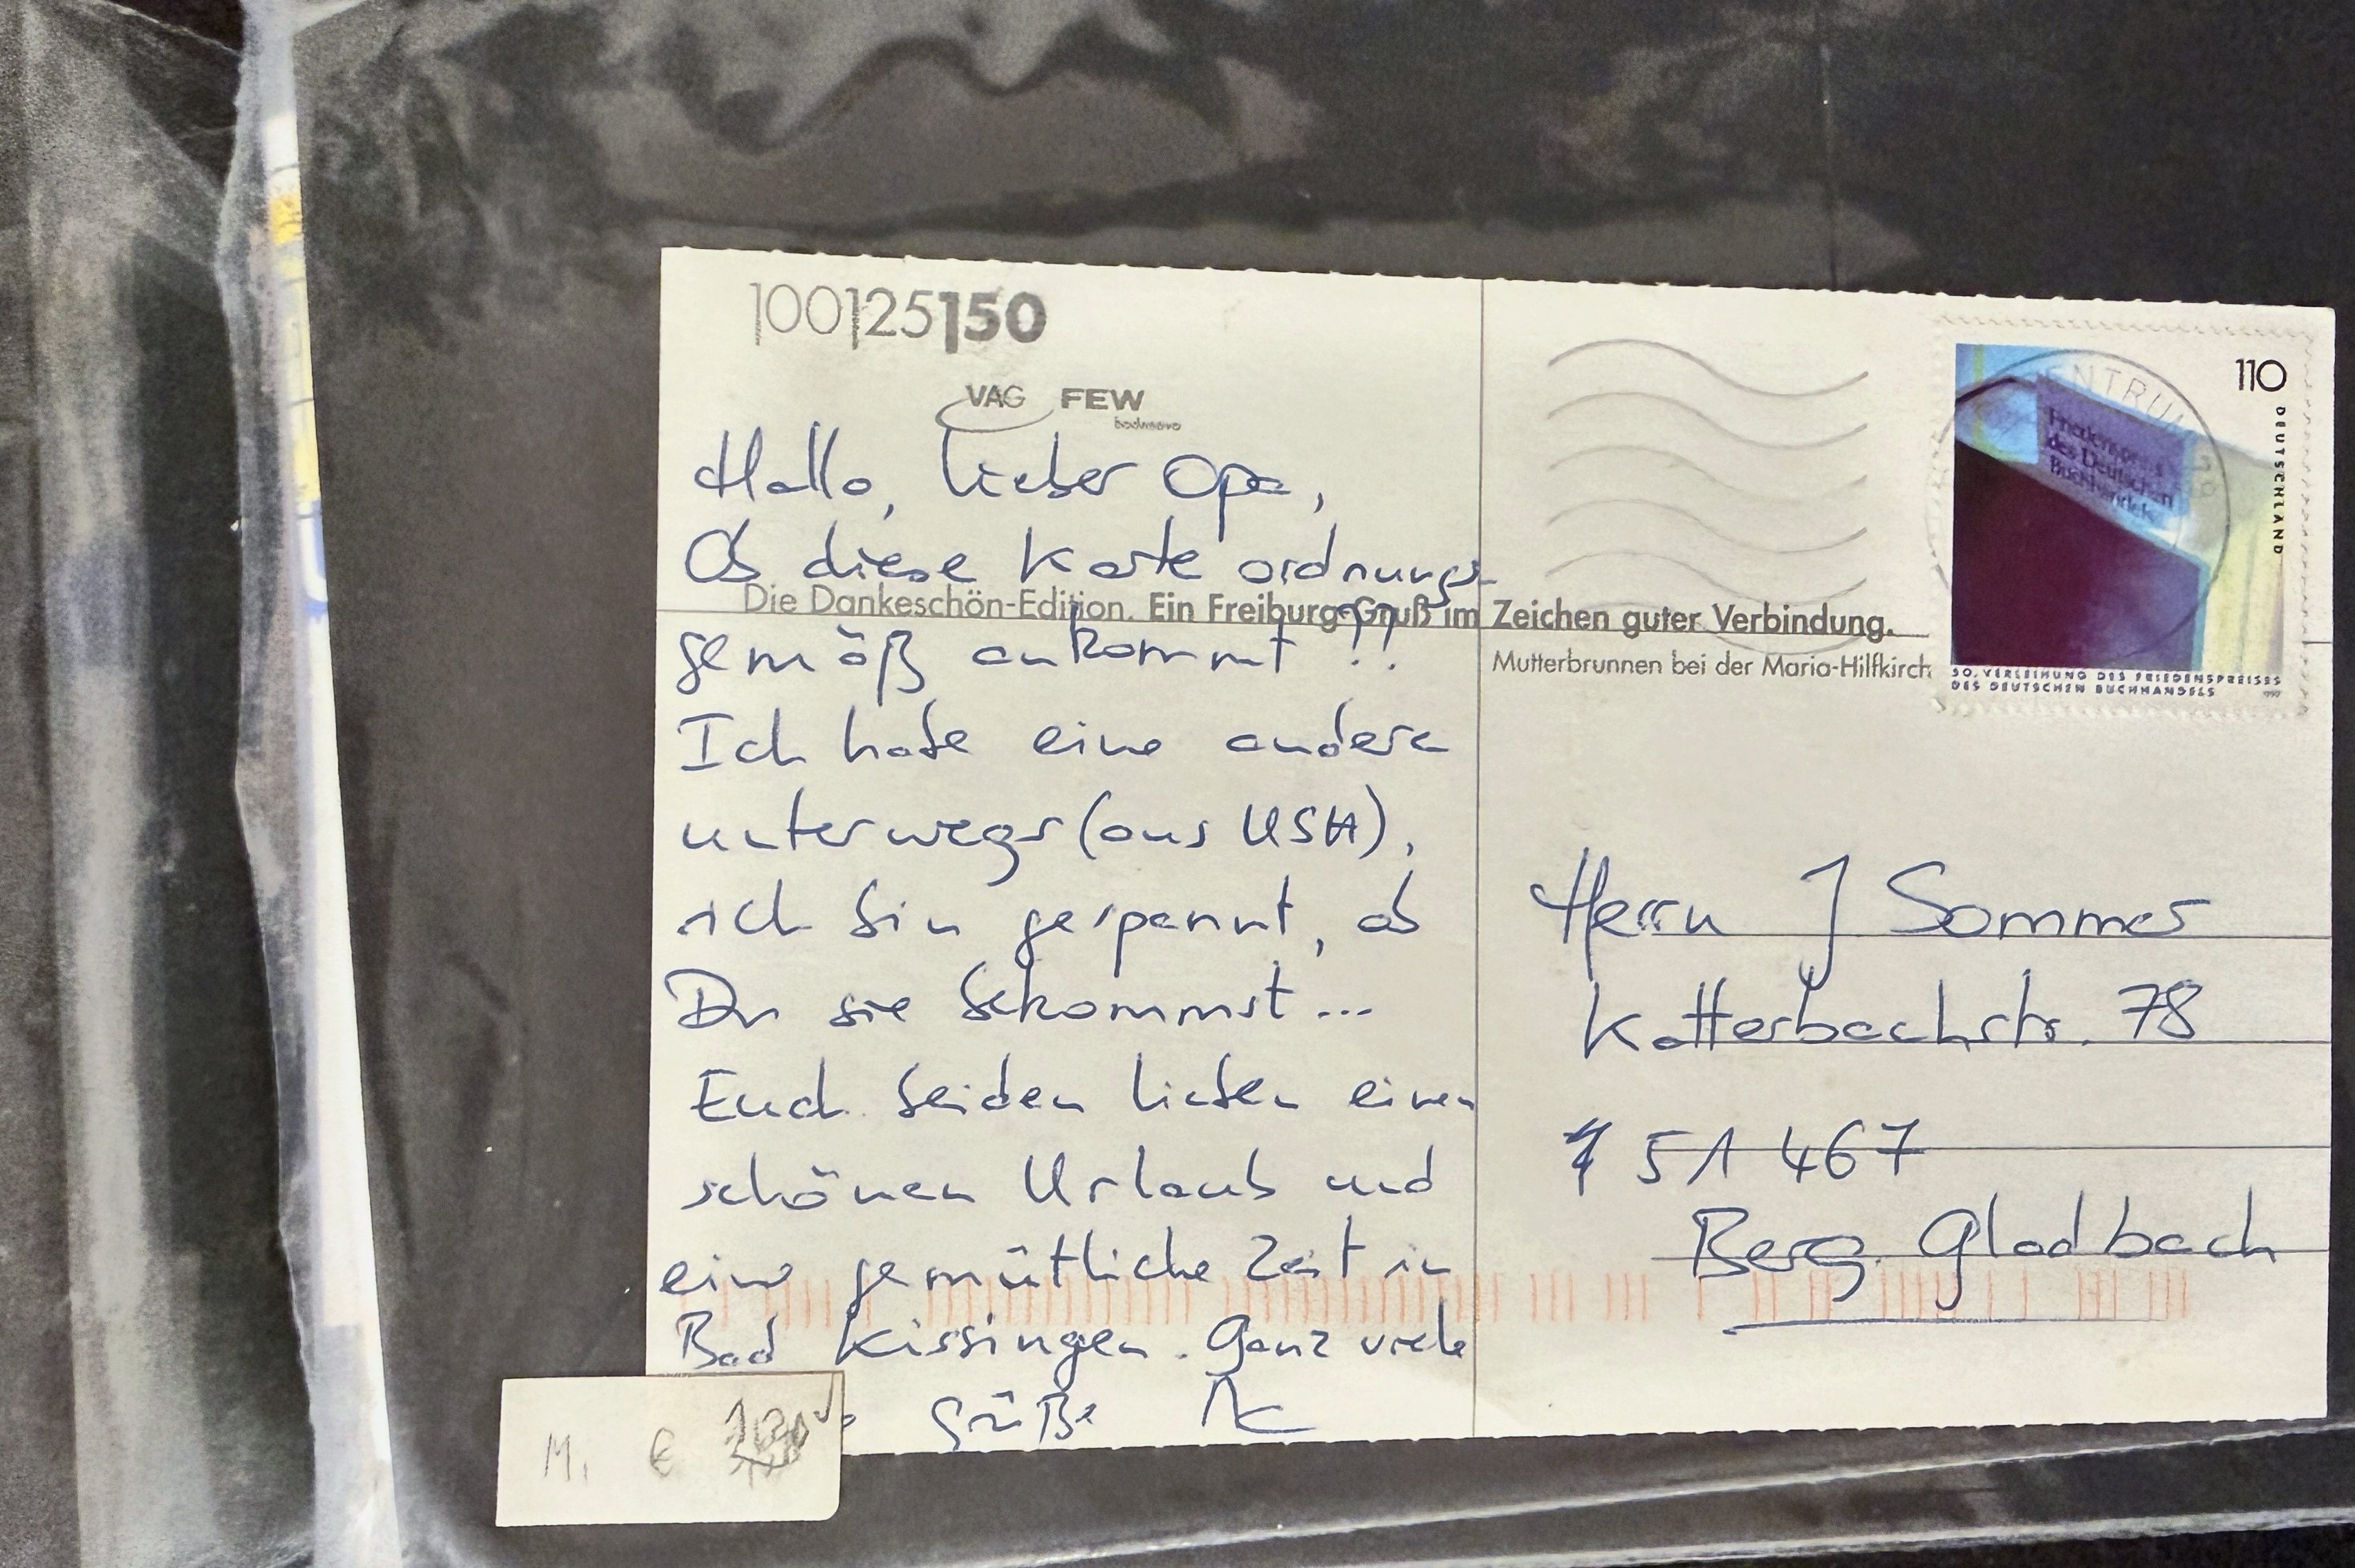 100|25|150
VAG FEW
badenova
Hallo, lieber Opa,
Ob diese Karte ordnungs-
gemäß ankommt !!
Ich habe eine andere
unterwegs (aus USA),
ich bin gespannt, ob
Du sie bekommst...
Euch beiden lieben einen
schönen Urlaub und
eine gemütliche Zeit in
Bad Kissingen. Ganz viele
Grüße
Die Dankeschön-Edition. Ein Freiburg-Gruß im Zeichen guter Verbindung.
Mutterbrunnen bei der Maria-Hilfkirch
110
DEUTSCHLAND
ENTRUM
Friedenspreis
des Deutschen
Buchhandels
50. VERLEIHUNG DES FRIEDENSPREISES
DES DEUTSCHEN BUCHHANDELS
Herrn J Sommer
Katterbachstr. 78
51 467
Berg. Gladbach
M. €